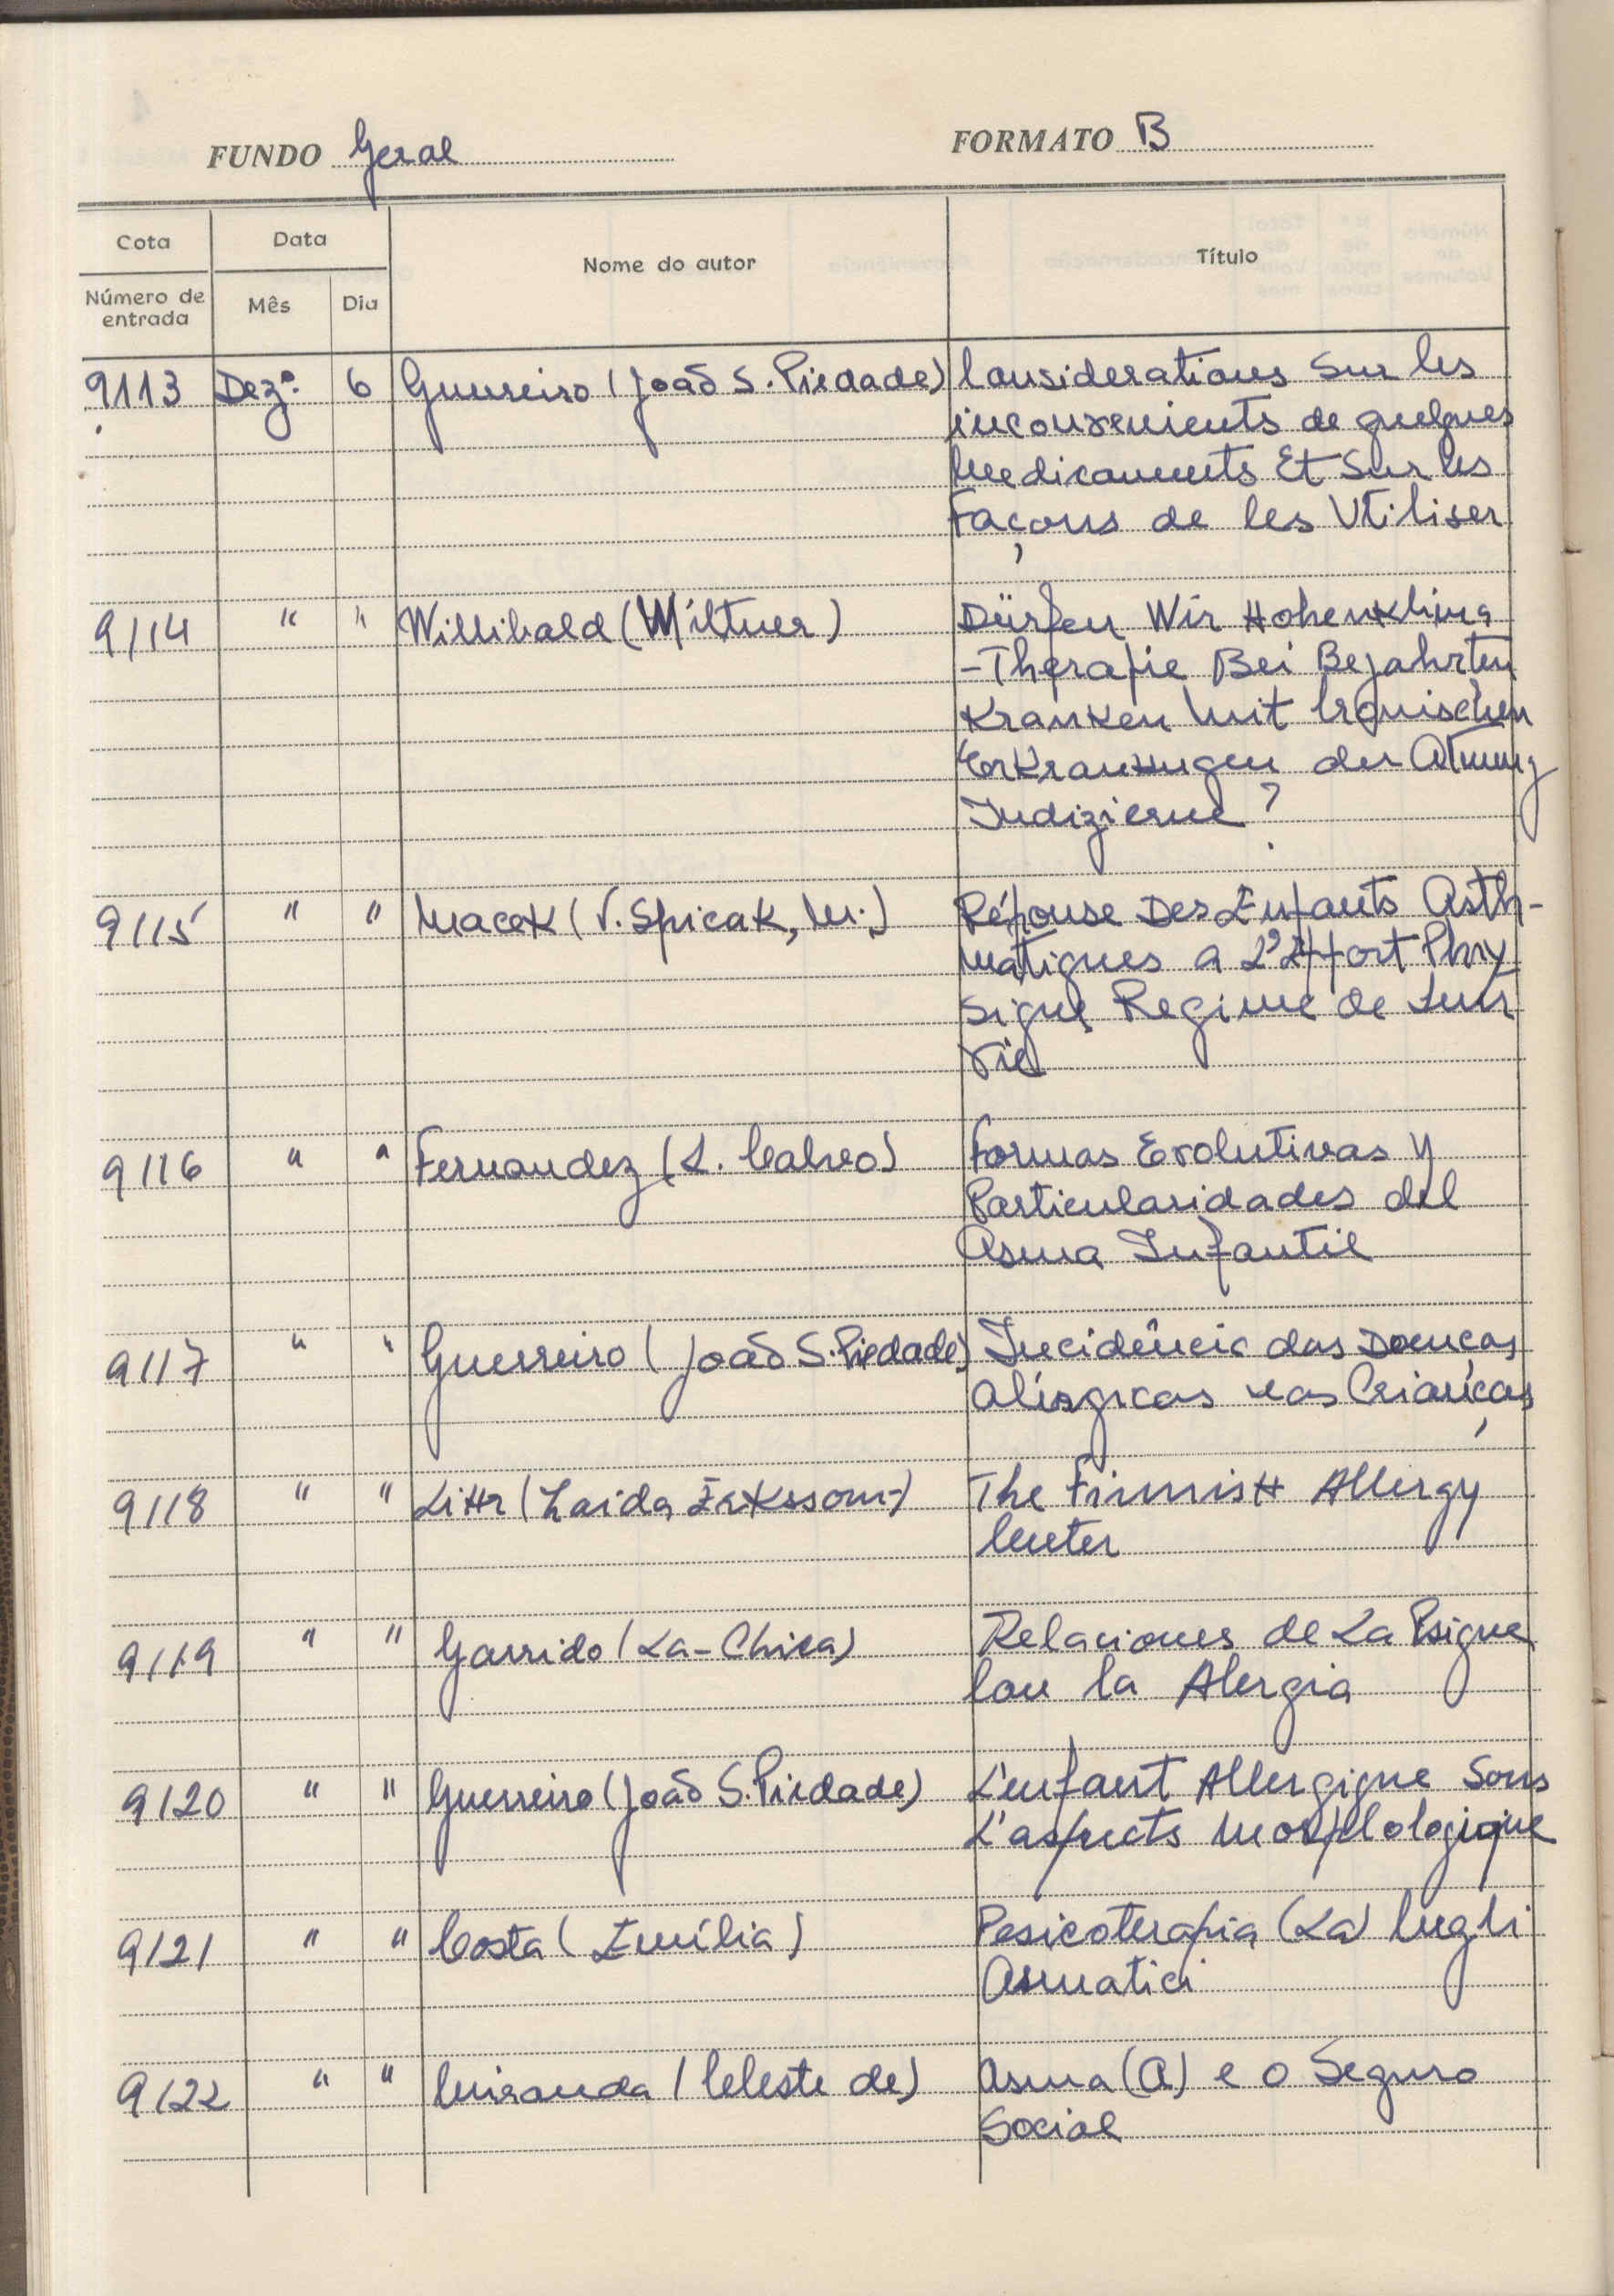 FUNDO Geral
FORMATO B
Cota
Data
Nome do autor
Título
Número de
entrada
Mês
Dia
9113 Dezº. 6 Guerreiro (João S. Piedade) Considerations Sur les
inconvenients de quelques
Medicaments Et Sur les
Façons de les Utiliser
9114 " " Willibald (Miltner) Dürfen Wir Hohenklima
-Therapie Bei Bejahrten
Kranken Mit Cronischen
Erkrankungen der Atmung
Indizierne?
9115 " " Macek (V. Spicak, M.) Réponse Des Enfants Asth-
matiques a L'Effort Phy
sique Regime de Leur
Vie
9116 " " Fernandez (L. Calvo) Formas Evolutivas Y
Particularidades del
Asma Infantil
9117 " " Guerreiro (João S. Piedade) Incidência das Doenças
Alérgicas nas Crianças
9118 " " (Zaida The Finnish Allergy
Center
9119 " " Garrido (La-Chica) Relaciones de La Psique
Con la Alergia
9120 " " Guerreiro (João S. Piedade) L'enfant Allergique Sous
L'aspects Morphologique
9121 " " Costa (Emília) Pesicoterapia (La) Negli
Asmatici
9122 " " Miranda (Celeste de) Asma (A) e o Seguro
Social